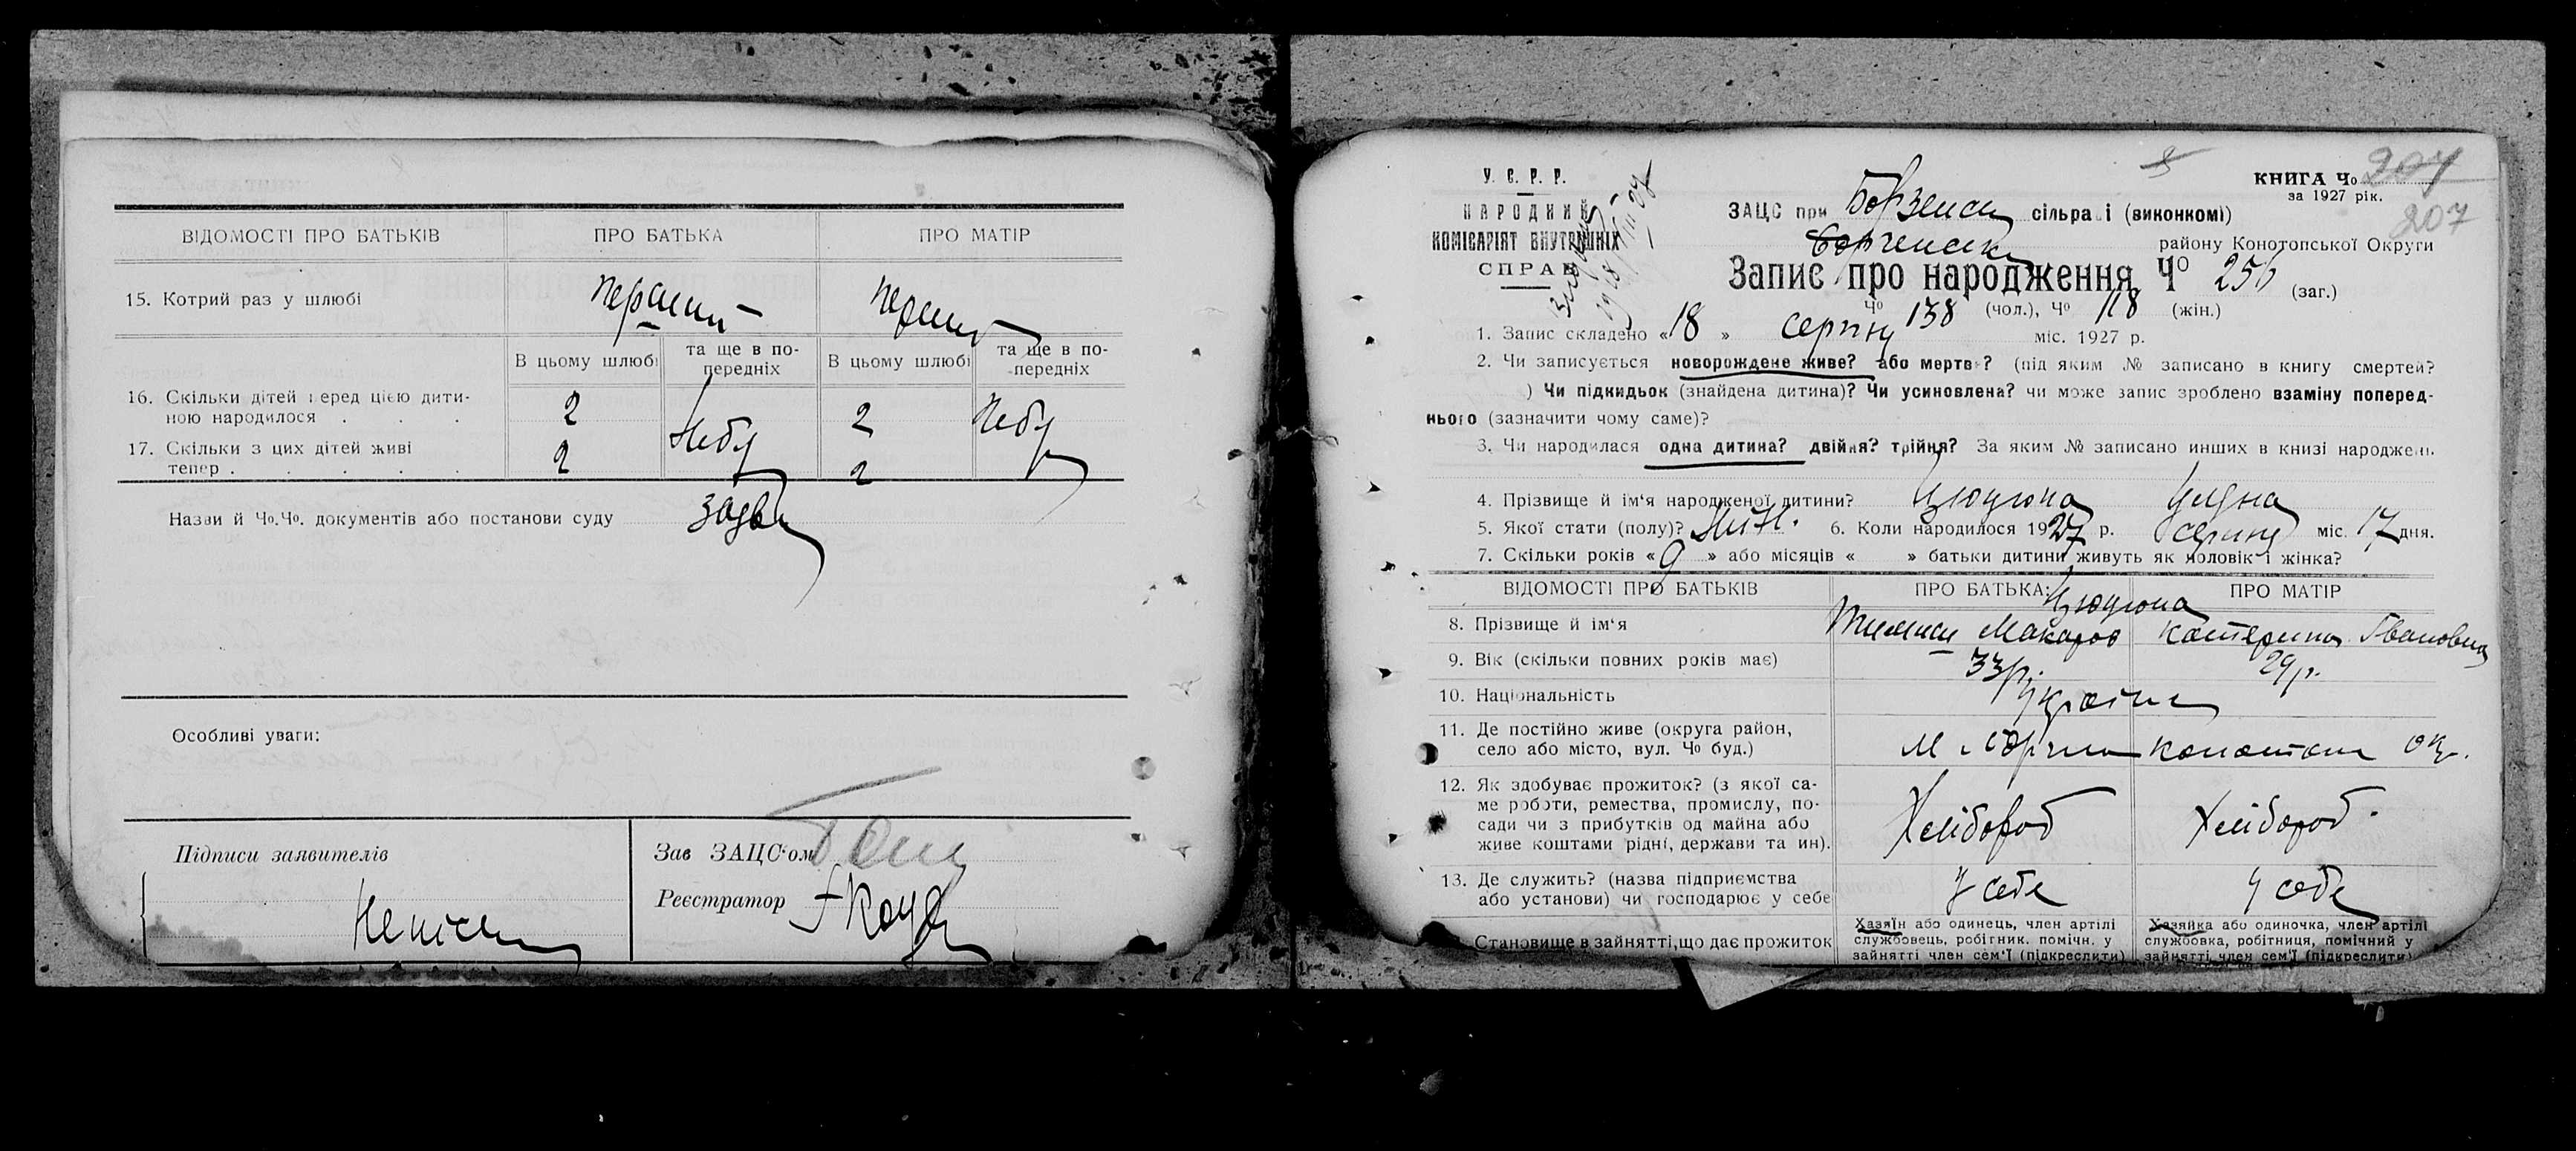 ВІДОМОСТІ ПРО БАТЬКІВ ПРО БАТЬКА ПРО МАТІР
15. Котрий раз у шлюбі перший перший
В цьому шлюбі та ще в по-передніх В цьому шлюбі та ще в по-передніх
16. Скільки дітей перед цією дити-
ною народилося . . . 2 Небу 2 Небу
17. Скільки з цих дітей живі
тепер . . . . . 2 2
Назви й Чо.Чо. документів або постанови суду
Особливі уваги:
Підписи заявителів
Зав ЗАЦС'ом
Реєстратор
У. С. Р. Р.
НАРОДНИЙ
КОМІСАРІЯТ ВНУТРІШНІХ
СПРАВ
КНИГА Чо 207
за 1927 рік.
207
ЗАЦС при Борзенск сільраді (виконкомі)
району Конотопської Округи
Запис про народження Чо 256 (заг.)
Чо 138 (чол.), Чо 118 (жін.)
1. Запис складено « 18 » серпня міс. 1927 р.
2. Чи записується новорождене живе? або мертве? (під яким № записано в книгу смертей?
) Чи підкидьок (знайдена дитина)? Чи усиновлена? чи може запис зроблено взаміну поперед-
нього (зазначити чому саме)?
3. Чи народилася одна дитина? двійня? трійня? За яким № записано инших в книзі народжень
4. Прізвище й ім'я народженої дитини?
5. Якої стати (полу)? жін. 6. Коли народилося 1927 р. серпня міс. 17 дня.
7. Скільки років « 9 » або місяців « » батьки дитини живуть як чоловік і жінка?
ВІДОМОСТІ ПРО БАТЬКІВ ПРО БАТЬКА: ПРО МАТІР
8. Прізвище й ім'я Макаров Катерина Івановна
9. Вік (скільки повних років має) 33р. 29р.
10. Національність Україн
11. Де постійно живе (округа район,
село або місто, вул. Чо буд.) М. Борзна Конотоп окр.
12. Як здобуває прожиток? (з якої са-
ме роботи, ремества, промислу, по-
сади чи з прибутків од майна або
живе коштами рідні, держави та ин). Хлібороб Хлібороб.
13. Де служить? (назва підприємства
або установи) чи господарює у себе У себе У себе
Становище в зайнятті, що дає прожиток
Хазяїн або одинець, член артілі
службовець, робітник. помічн. у
зайнятті член сем'ї (підкреслити)
Хазяйка або одиночка, член артілі
службовка, робітниця, помічний у
зайнятті член сем'ї (підкреслити)